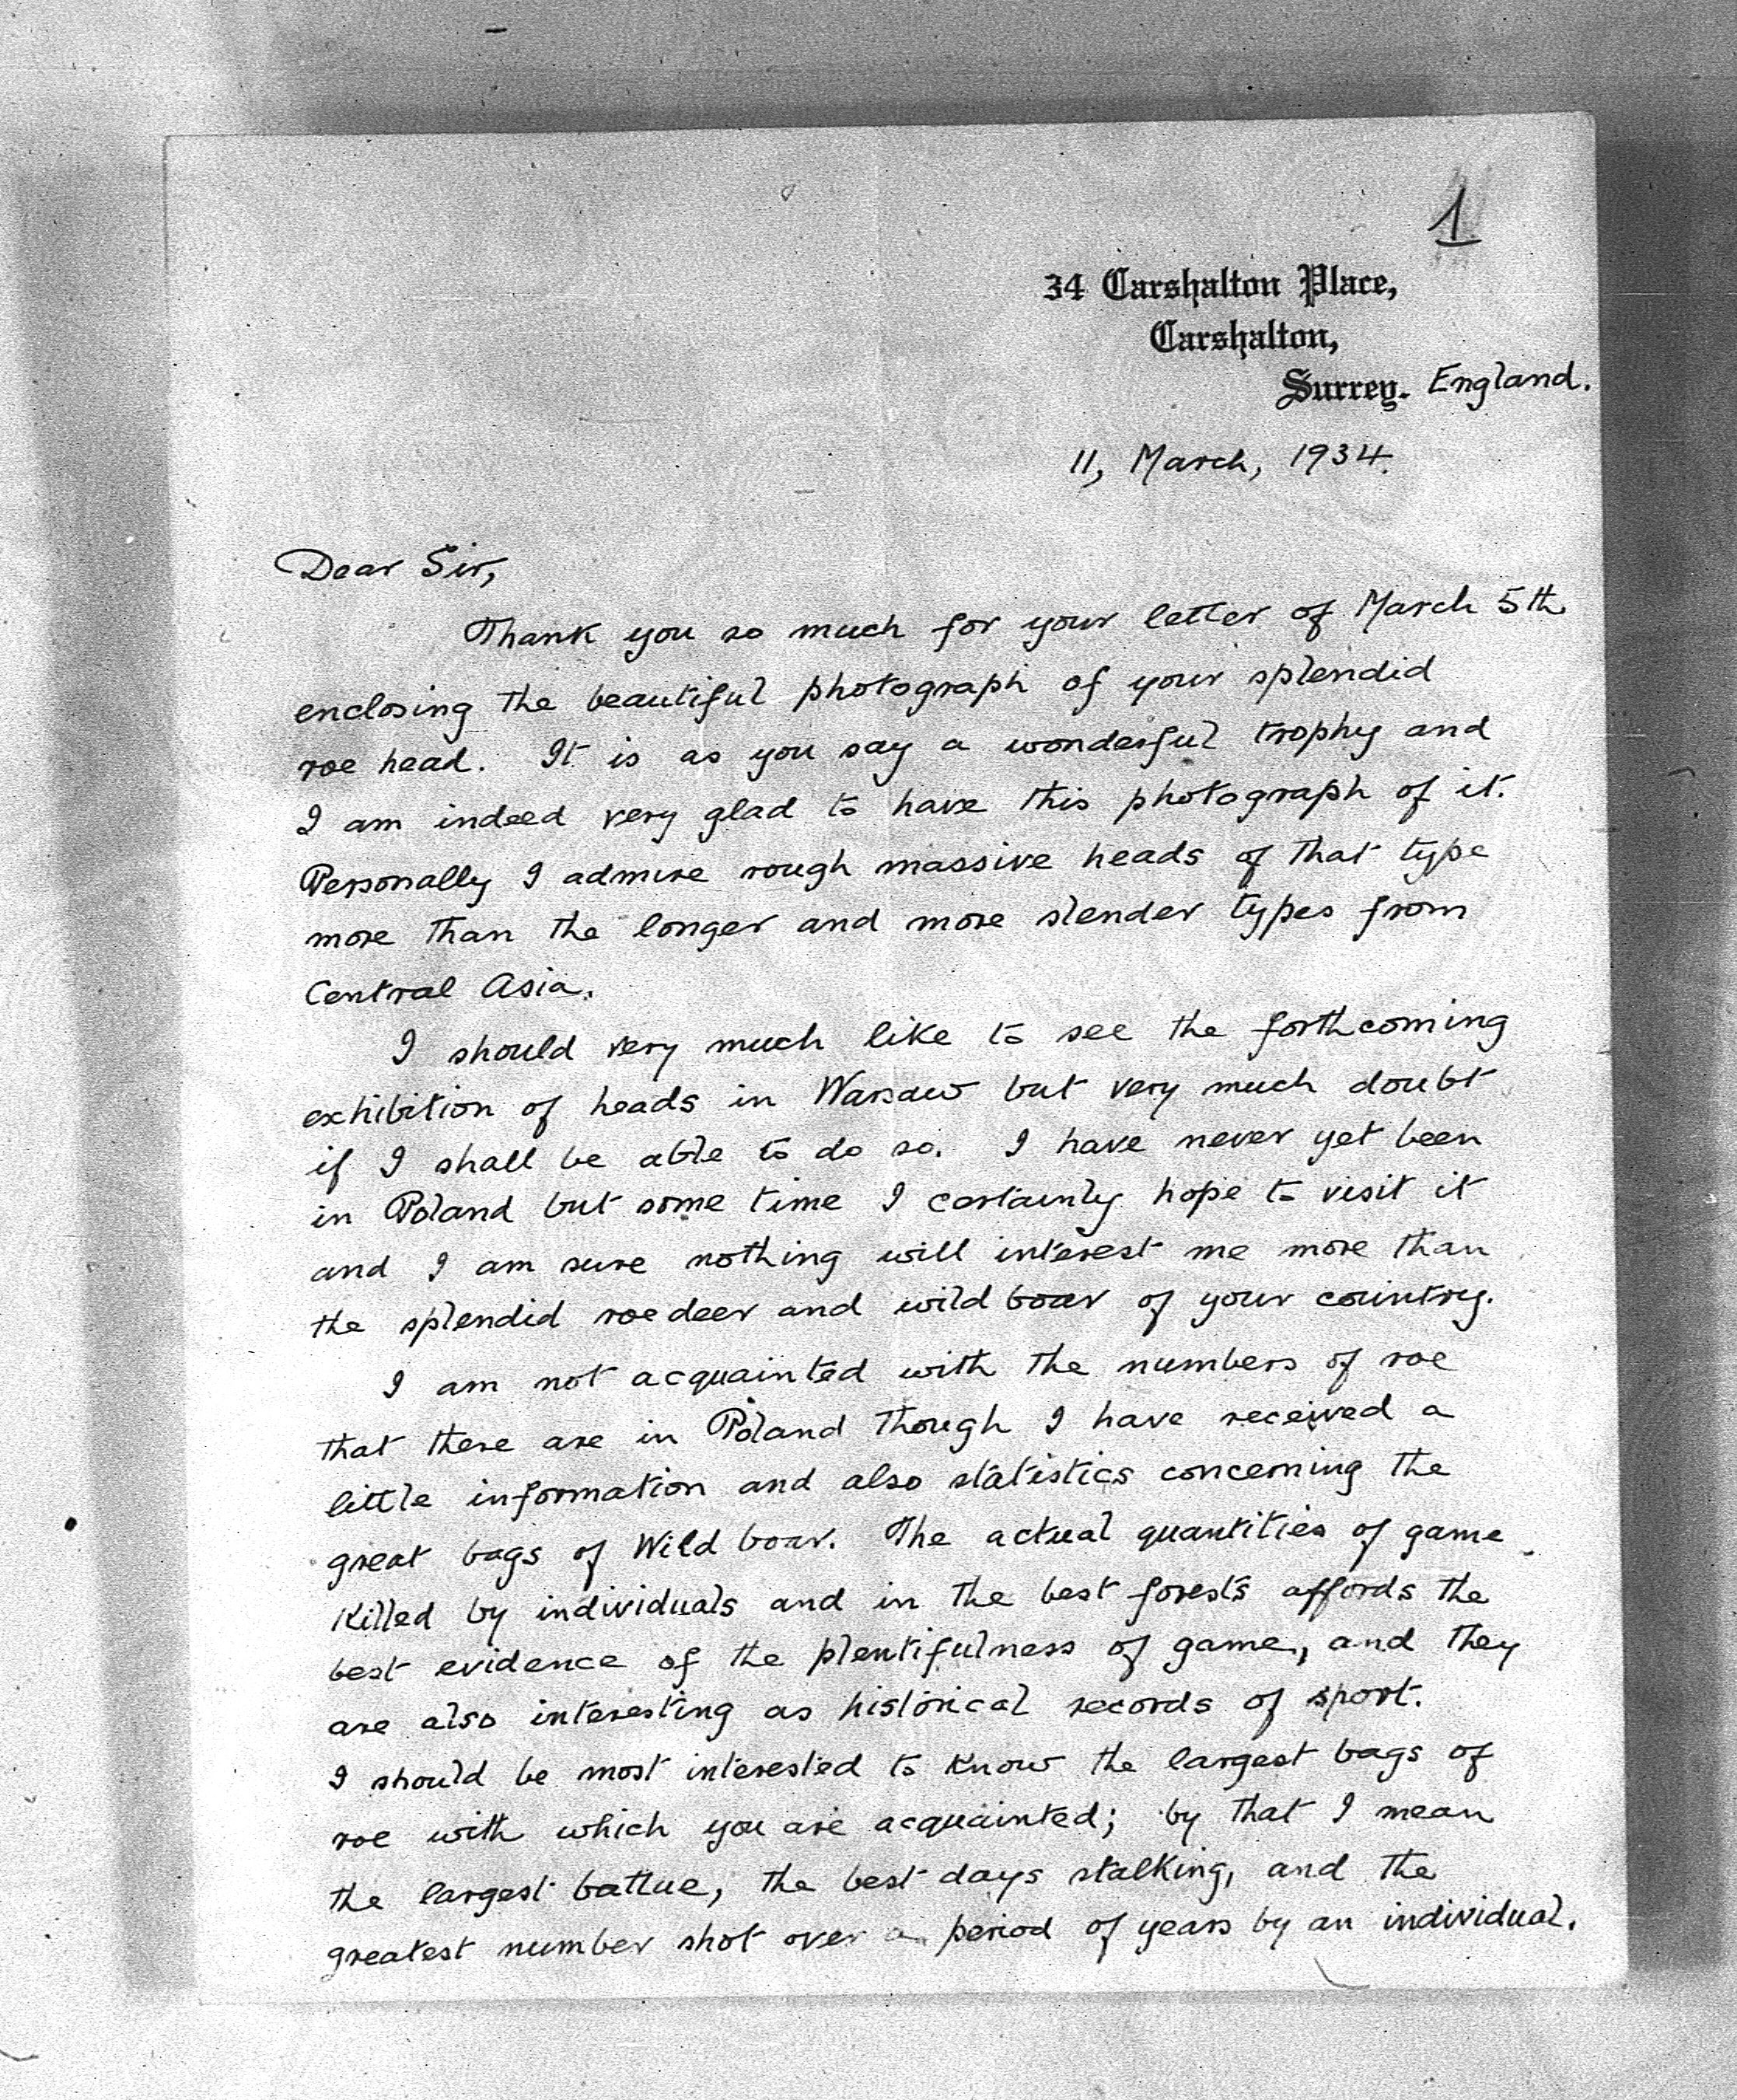 1
34 Carshalton Place,
Carshalton,
Surrey. England.
11, March, 1934.
Dear Sir,
Thank you so much for your letter of March 5th
enclosing the beautiful photograph of your splendid
roe head. It is as you say a wonderful trophy and
I am indeed very glad to have this photograph of it.
Personally I admire rough massive heads of that type
more than the longer and more slender types from
Central Asia.
I should very much like to see the forthcoming
exhibition of heads in Warsaw but very much doubt
if I shall be able to do so. I have never yet been
in Poland but some time I certainly hope to visit it
and I am sure nothing will interest me more than
the splendid roe deer and wild boar of your country.
I am not acquainted with the numbers of roe
that there are in Poland though I have received a
little information and also statistics concerning the
great bags of Wild boar. The actual quantities of game
killed by individuals and in the best forests affords the
best evidence of the plentifulness of game, and they
are also interesting as historical records of sport.
I should be most interested to know the largest bags of
roe with which you are acquainted; by that I mean
the largest battue, the best days stalking, and the
greatest number shot over a period of years by an individual.